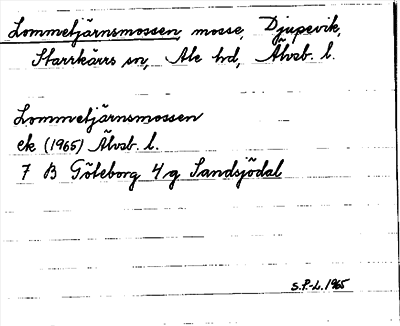 Lommetjärnsmossen, mosse, Djupevik,
Starrkärrs sn, Ale hd, Älvsb. l.
Lommetjärnsmossen
ek (1965) Älvsb. l.
7 B Göteborg 4 g Sandsjödal
S.P-L. 1965